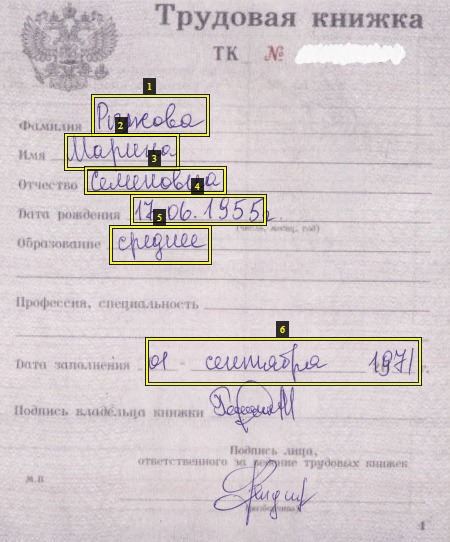 Трудовая книжка
ТК №
1
Фамилия Рыжкова
2
Имя Марина
3
Отчество Семеновна
4
Дата рождения 17.06.1955 г.
(число, месяц, год)
5
Образование среднее
Профессия, специальность
6
Дата заполнения 01 сентября 1971 г.
Подпись владельца книжки
Подпись лица,
ответственного за ведение трудовых книжек
М.П
(разборчиво)
1